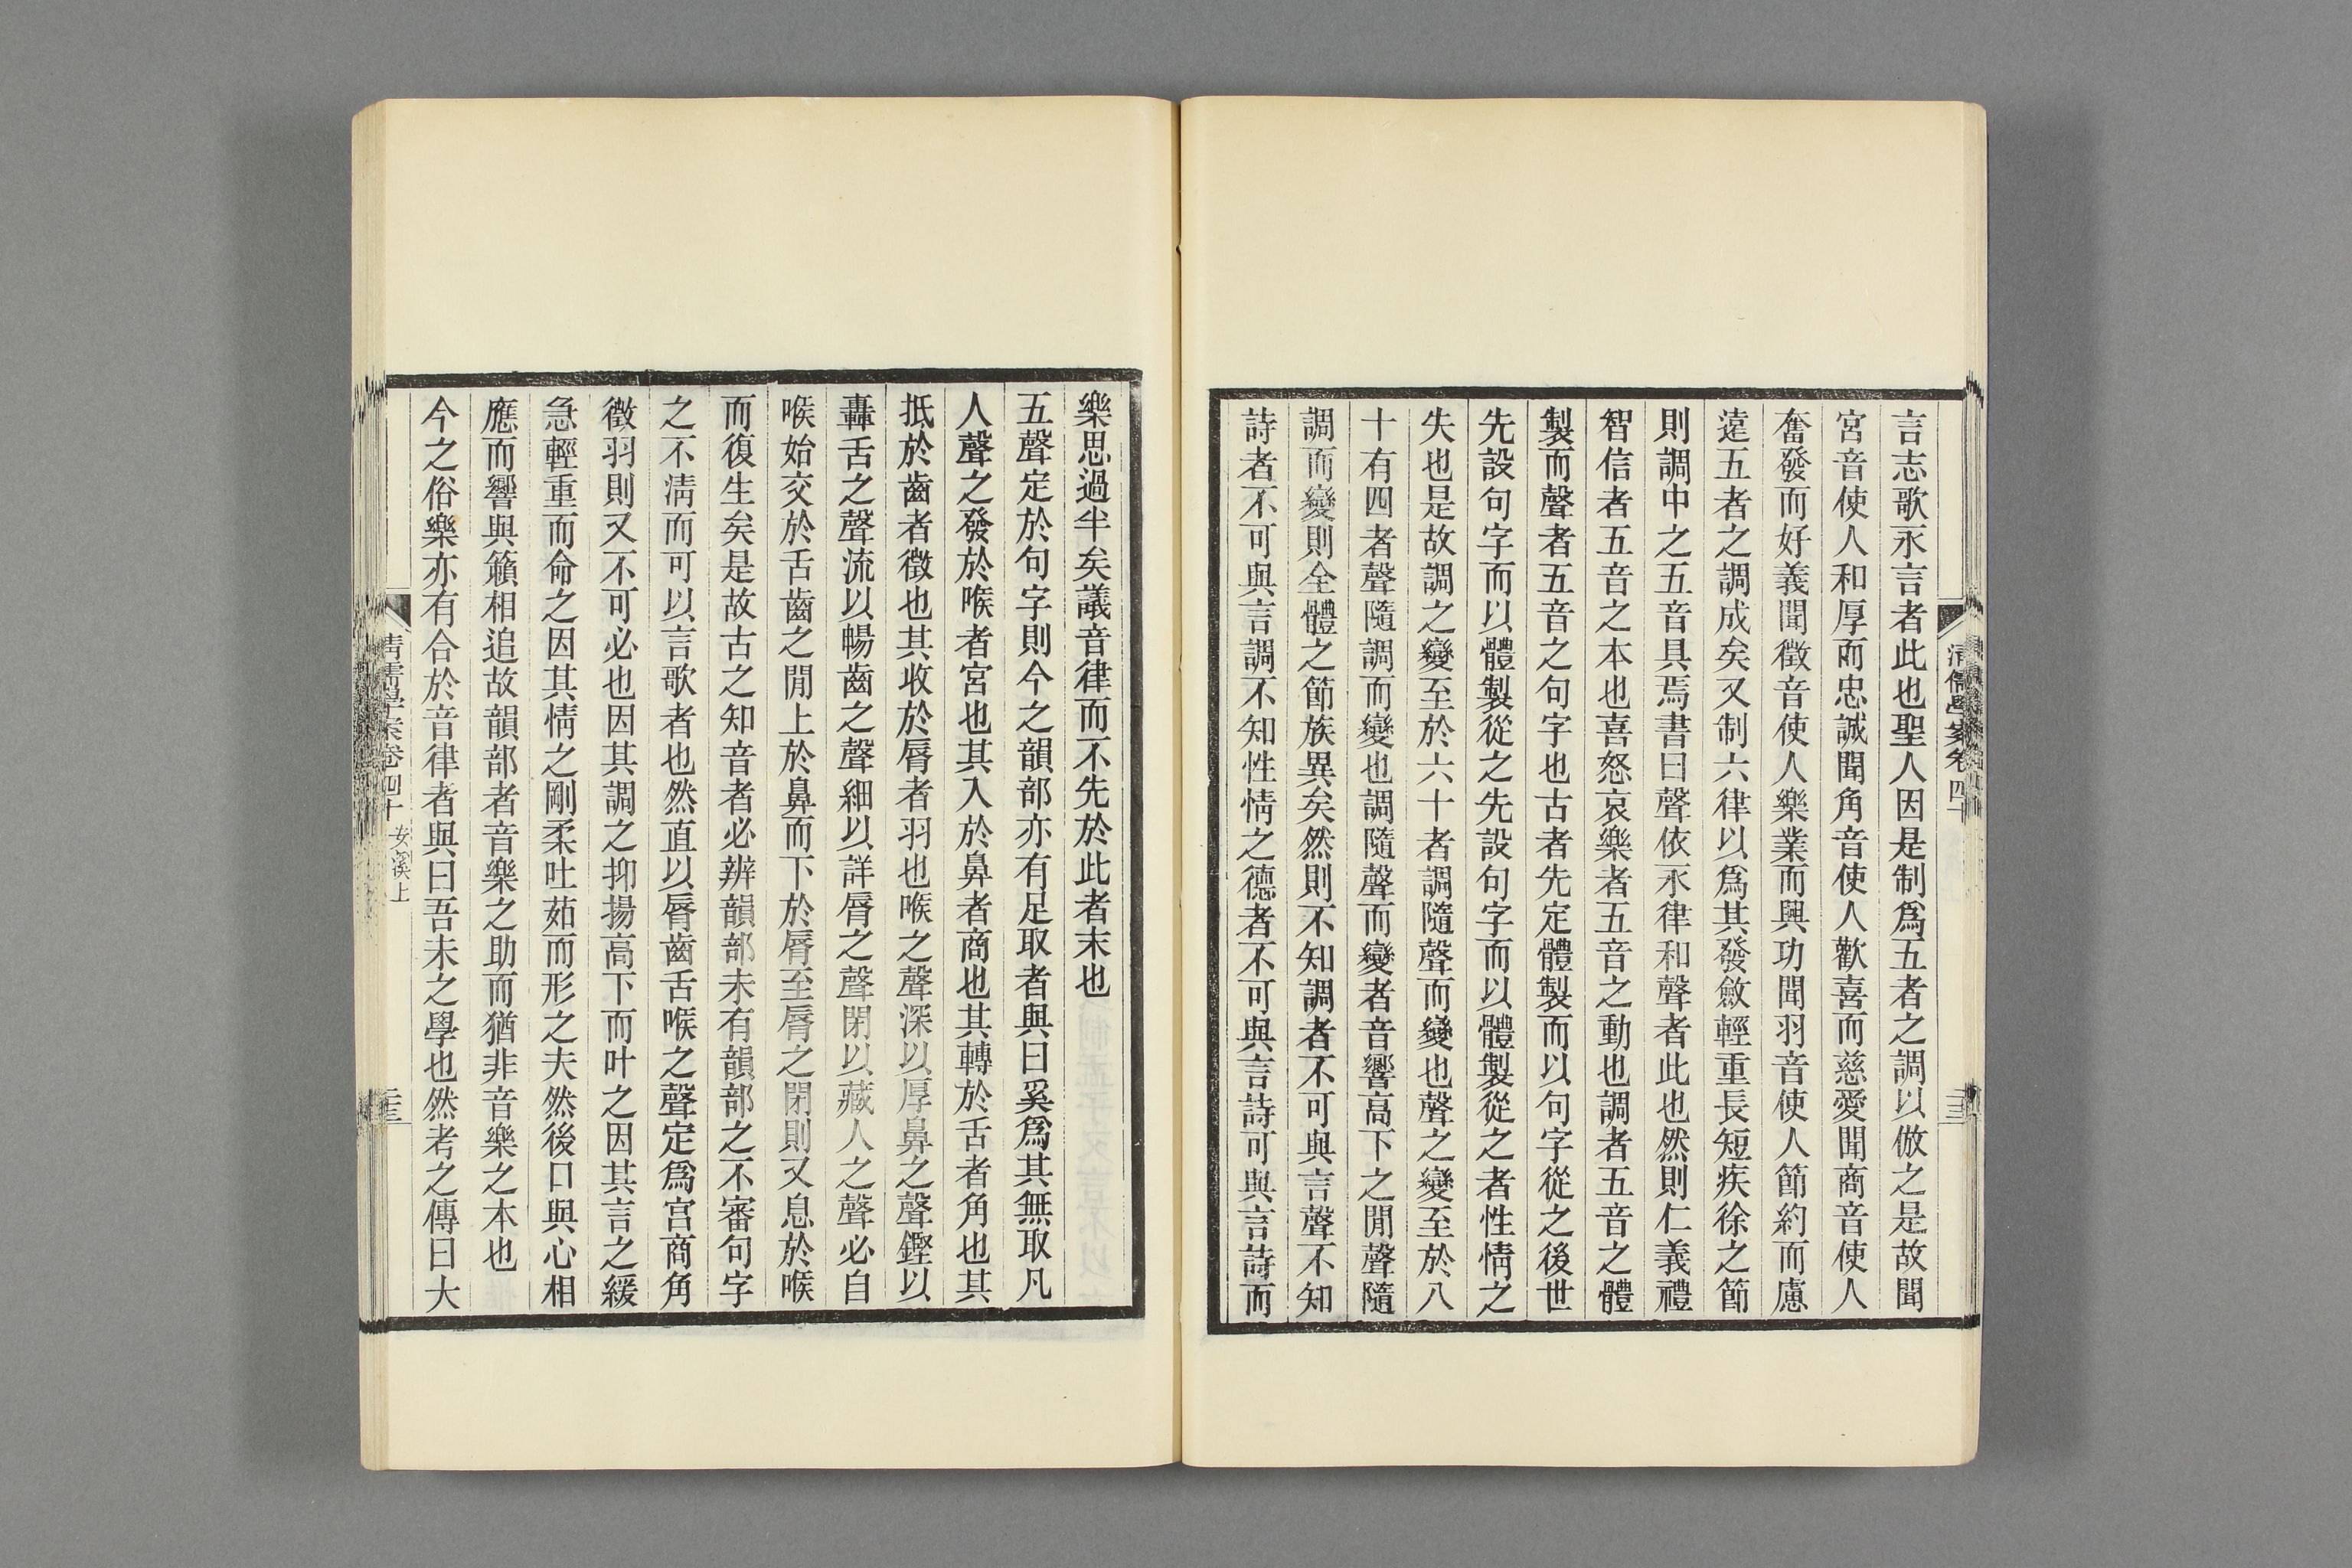 言志歌永言者此也聖人因是制爲五者之調以倣之是故聞
宮音使人和厚而忠誠聞角音使人歡喜而慈愛聞商音使人
奮發而好義聞徵音使人樂業而興功聞羽音使人節約而慮
遠五者之調成矣又制六律以爲其發斂輕重長短疾徐之節
則調中之五音具焉書曰聲依永律和聲者此也然則仁義禮
智信者五音之本也喜怒哀樂者五音之動也調者五音之體
製而聲者五音之句字也古者先定體製而以句字從之後世
先設句字而以體製從之先設句字而以體製從之者性情之
失也是故調之變至於六十者調隨聲而變也聲之變至於八
十有四者聲隨調而變也調隨聲而變者音響高下之閒聲隨
調而變則全體之節族異矣然則不知調者不可與言聲不知
詩者不可與言調不知性情之德者不可與言詩可與言詩而
清儒學案卷四十
樂思過半矣議音律而不先於此者末也
五聲定於句字則今之韻部亦有足取者與曰奚爲其無取凡
人聲之發於喉者宮也其入於鼻者商也其轉於舌者角也其
抵於齒者徵也其收於脣者羽也喉之聲深以厚鼻之聲鏗以
轟舌之聲流以暢齒之聲細以詳脣之聲閉以藏人之聲必自
喉始交於舌齒之閒上於鼻而下於脣至脣之閉則又息於喉
而復生矣是故古之知音者必辨韻部未有韻部之不審句字
之不淸而可以言歌者也然直以脣齒舌喉之聲定爲宮商角
徵羽則又不可必也因其調之抑揚高下而叶之因其言之緩
急輕重而命之因其情之剛柔吐茹而形之夫然後口與心相
應而響與籟相追故韻部者音樂之助而猶非音樂之本也
今之俗樂亦有合於音律者與曰吾未之學也然考之傳曰大
清儒學案卷四十 安溪上